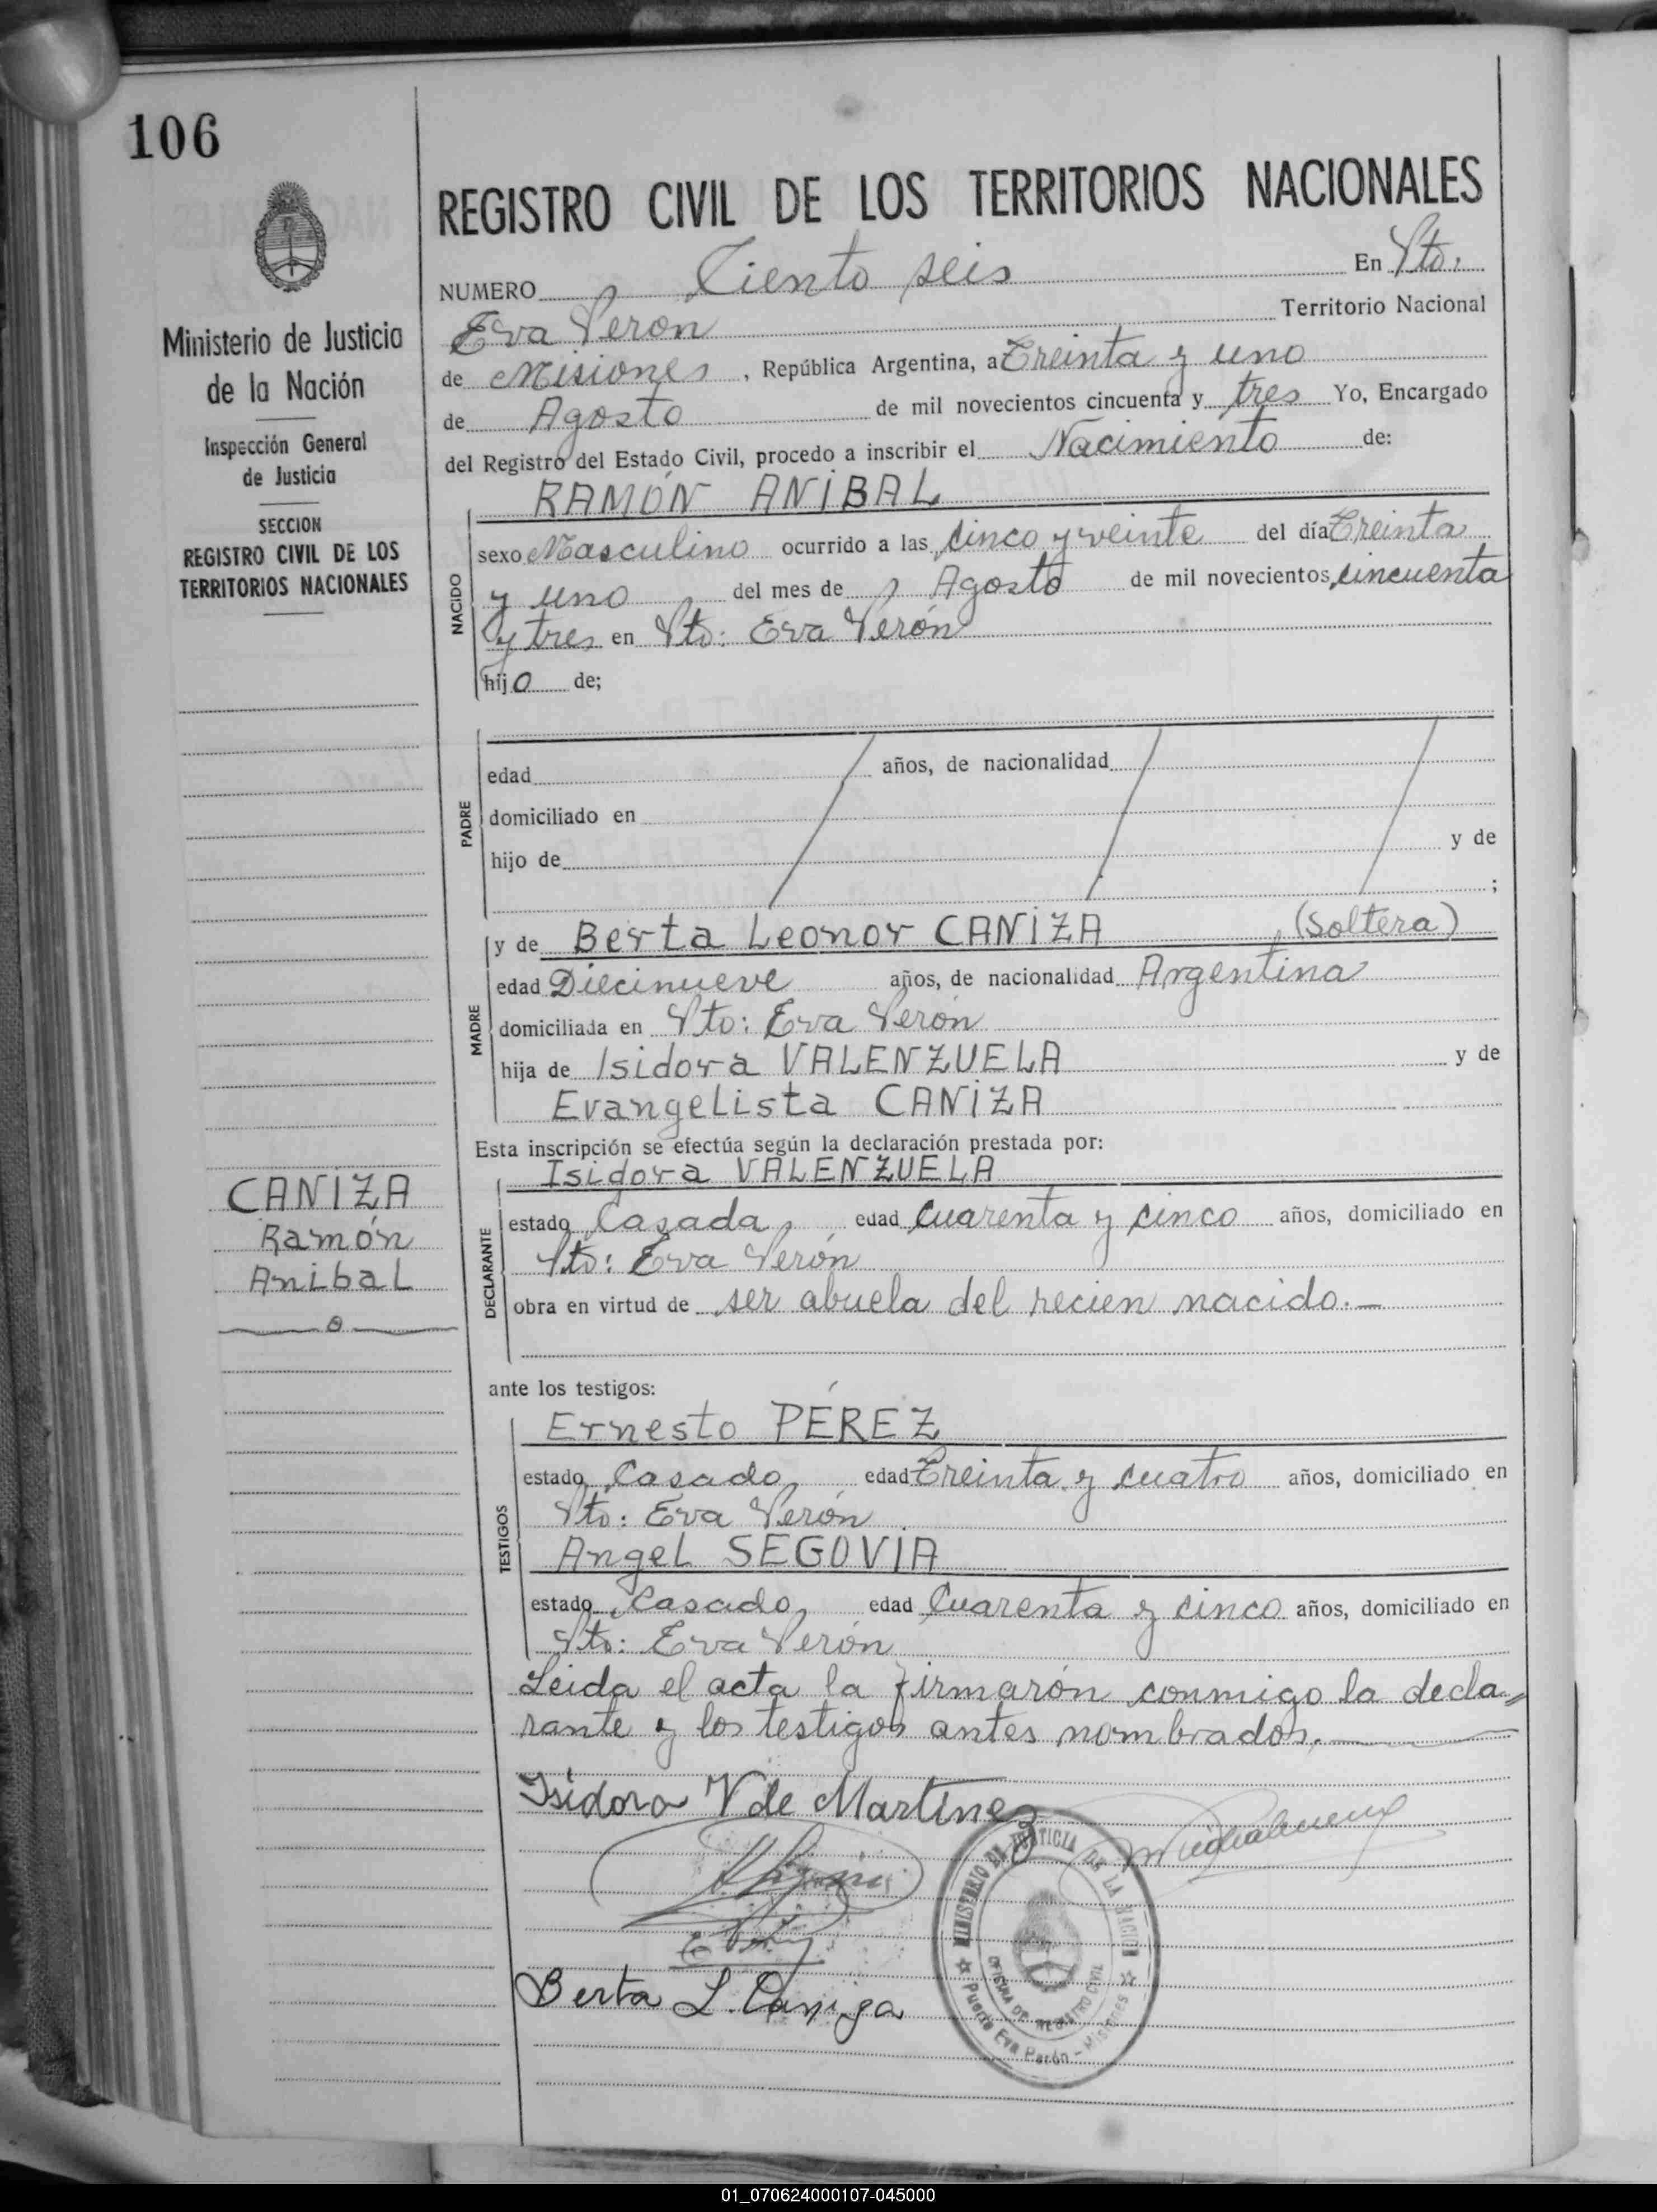 106
Ministerio de Justicia
de la Nación
Inspección General
de Justicia
SECCION
REGISTRO CIVIL DE LOS
TERRITORIOS NACIONALES
CANIZA
Ramón
Anibal
REGISTRO CIVIL DE LOS TERRITORIOS NACIONALES
NUMERO Ciento seis En Pto:
Eva Perón Territorio Nacional
de Misiones, República Argentina, a Treinta y uno
de Agosto de mil novecientos cincuenta y tres Yo, Encargado
del Registro del Estado Civil, procedo a inscribir el Nacimiento de:
RAMÓN ANIBAL
NACIDO
sexo Masculino ocurrido a las cinco y veinte del día Treinta
y uno del mes de Agosto de mil novecientos cincuenta
y tres en Pto: Eva Perón
hijo de;
PADRE
edad años, de nacionalidad
domiciliado en
hijo de y de
;
MADRE
y de Berta Leonor CANIZA (Soltera)
edad Diecinueve años, de nacionalidad Argentina
domiciliada en Pto: Eva Perón
hija de Isidora VALENZUELA y de
Evangelista CANIZA
Esta inscripción se efectúa según la declaración prestada por:
Isidora VALENZUELA
DECLARANTE
estado Casada, edad Cuarenta y cinco años, domiciliado en
Pto: Eva Perón
obra en virtud de ser abuela del recien nacido.—
ante los testigos:
TESTIGOS
Ernesto PÉREZ
estado Casado, edad Treinta y cuatro años, domiciliado en
Pto: Eva Perón
Angel SEGOVIA
estado Casado, edad Cuarenta y cinco años, domiciliado en
Pto: Eva Perón
Leida el acta la firmarón conmigo la decla=
rante y los testigos antes nombrados.
Isidora V de Martinez
Berta L. Caniza
MINISTERIO DE JUSTICIA DE LA NACION
OFICINA DE REGISTRO CIVIL
Puerto Eva Perón - Misiones
01_070624000107-045000